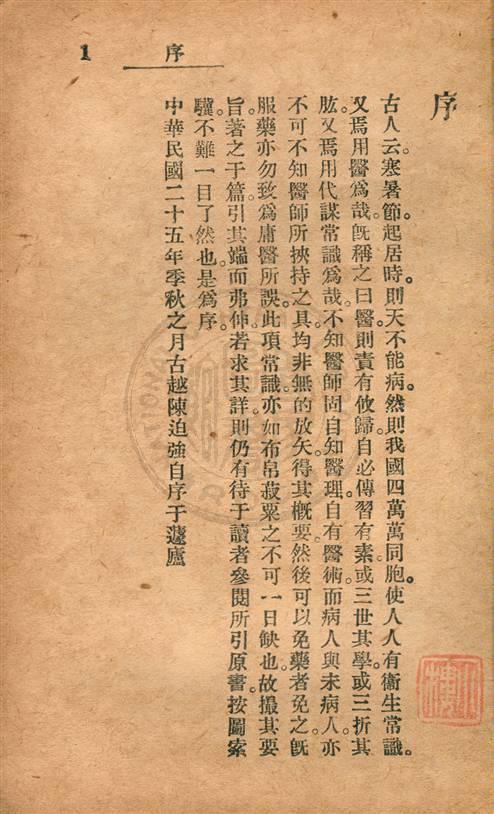 序
1
序
古人云。寒暑節。起居時。則天不能病。然則我國四萬萬同胞。使人人有衞生常識。
又焉用醫爲哉。旣稱之曰醫。則責有攸歸。自必傳習有素。或三世其學。或三折其
肱。又焉用代謀常識爲哉。不知醫師固自知醫理。自有醫術。而病人與未病人。亦
不可不知醫師所挾持之具。均非無的放矢。得其槪要。然後可以免藥者免之。旣
服藥亦勿致爲庸醫所誤。此項常識。亦如布帛菽粟之不可一日缺也。故撮其要
旨。著之于篇。引其端而弗伸。若求其詳。則仍有待于讀者參閱所引原書。按圖索
驥。不難一目了然也。是爲序。
中華民國二十五年季秋之月古越陳迫強自序于蘧廬